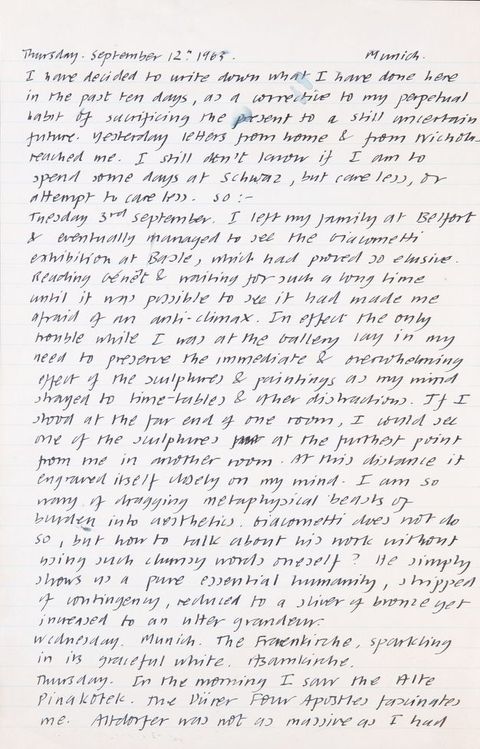 Thursday. September 12th 1963. Munich.
I have decided to write down what I have done here
in the past ten days, as a corrective to my perpetual
habit of sacrificing the present to a still uncertain
future. Yesterday letters from home & from Nicholas
reached me. I still don't know if I am to
spend some days at Schwaz, but care less, or
attempt to care less. So :-
Tuesday 3rd September. I left my family at Belfort
& eventually managed to see the Giacometti
exhibition at Basle, which had proved so elusive.
Reading Génêt & waiting for such a long time
until it was possible to see it had made me
afraid of an anti-climax. In effect the only
trouble while I was at the Gallery lay in my
need to preserve the immediate & overwhelming
effect of the sculptures & paintings as my mind
strayed to time-tables & other distractions. If I
stood at the far end of one room, I would see
one of the sculptures at the furthest point
from me in another room. At this distance it
engraved itself closely on my mind. I am so
wary of dragging metaphysical beasts of
burden into aesthetics. Giacometti does not do
so, but how to talk about his work without
using such clumsy words oneself? He simply
shows us a pure essential humanity, stripped
of contingency, reduced to a sliver of bronze yet
increased to an utter grandeur.
Wednesday. Munich. The Frauenkirche, sparkling
in its graceful white. Asamkirche.
Thursday. In the morning I saw the Alte
Pinakotek. The Dürer Four Apostles fascinates
me. Altdorfer was not as massive as I had